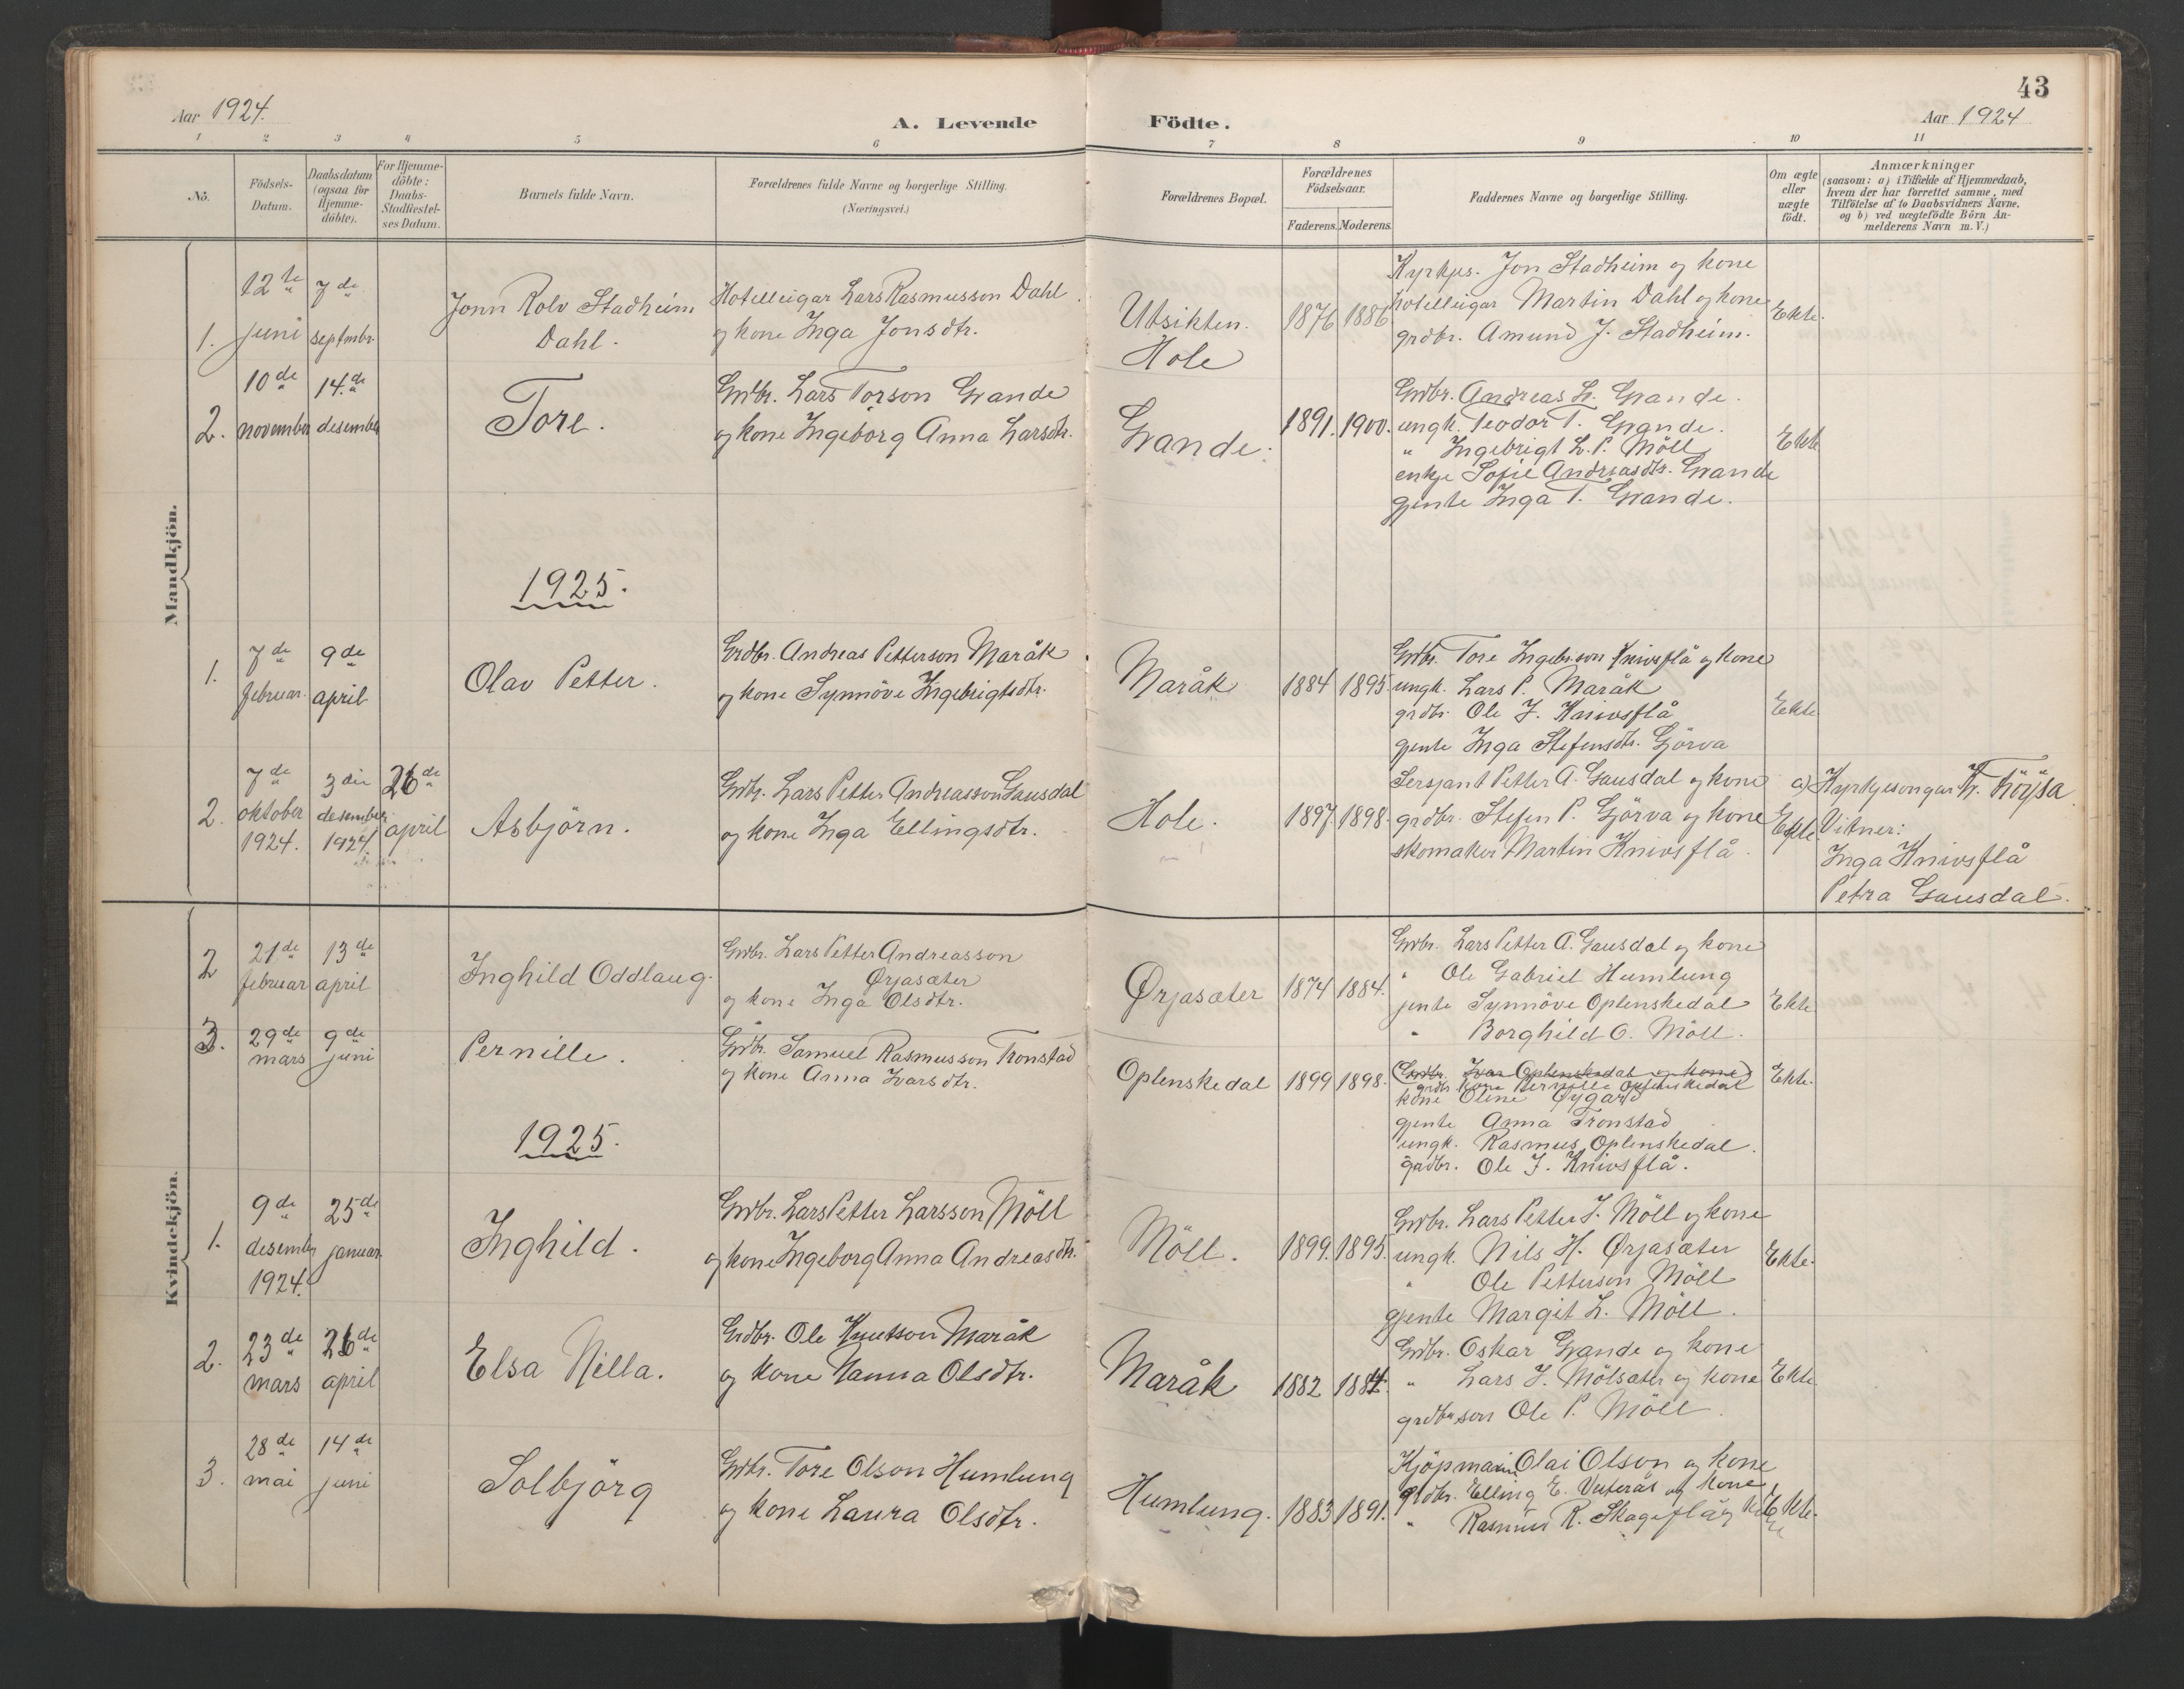 43
Aar 1924.
A. Levende Födte.
Aar 1924
1 2 3 4 5 6 7 8 9 10 11
No.
Födsels-Datum.
Daabsdatum (ogsaa for Hjemme-döbte).
For Hjemme-döbte: Daabs-Stadfæstel-ses Datum.
Barnets fulde Navn.
Forældrenes fulde Navne og borgerlige Stilling.
(Næringsvei.)
Forældrenes Bopæl.
Forældrenes Födselsaar.
Faderens. Moderens.
Faddernes Navne og borgerlige Stilling.
Om ægte eller uægte födt.
Anmærkninger
(saasom: a) i Tilfælde af Hjemmedaab,
hvem der har forrettet samme, med
Tilföielse af to Daabsvidners Navne,
og b) ved uægtefödte Börn An-
melderens Navn m.V.)
Mandkjön.
1. 12te juni
7de septmbr.
Jonn Rolv Stadheim
Dahl.
Hotelleigar Lars Rasmusson Dahl
og kone Inga Jonsdtr.
Utsikten.
Hole
1876 1886
Kyrkjes. Jon Stadheim og kone
hotelleigar Martin Dahl og kone
grdbr. Amund J. Stadheim.
Ekte.
2. 10de november
14.de desember
Tore.
Grdbr. Lars Torson Grande
og kone Ingeborg Anna Larsdtr.
Grande.
1891. 1900.
Grdbr. Andreas L. Grande.
ungk. Teodor T. Grande.
" Ingebrigt L. P. Möll
enkje Sofie Andreasdtr. Grande
gjente Inga T. Grande.
Ekte
1925.
1. 7de februar.
9de april
Olav Petter.
Grdbr. Andreas Petterson Maråk
og kone Synnöve Ingebrigtsdtr.
Maråk
1884 1895
Grdbr. Tore Ingebr.son Knivsflå og kone
ungk. Lars P. Maråk
grdbr. Ole J. Knivsflå
gjente Inga Stefensdtr. Gjörva
Ekte
2. 7de oktober 1924.
3die desember 1924
26de april
Asbjörn.
Grdbr. Lars Petter Andreasson Gausdal
og kone Inga Ellingsdtr.
Hole.
1897. 1898.
Sersjant Petter A. Gausdal og kone
grdbr. Stefen P. Gjörva og kone
skomaker Martin Knivsflå.
Ekte.
a) Kyrkjesongar K. Töysa
Vitner:
Inga Knivsflå
Petra Gausdal.
Kvindekjön.
2 21de februar
13de april
Inghild Oddlaug.
Grdbr. Lars Petter Andreasson
Ørjasæter
og kone Inga Olsdtr.
Ørjasæter
1874 1884.
Grdbr. Lars Petter A. Gausdal og kone
" Ole Gabriel Humlung
jente Synnöve Oplenskedal
" Borghild O. Möll.
Ekte
3. 29de mars
9de juni
Pernille.
Grdbr. Samuel Rasmusson Tronstad
og kone Anna Ivarsdtr.
Oplenskedal
1899 1898.
Grdbr. Ivar Oplenskedal og kone
grdbr. kone Pernille Oplenskedal
kone Oline Øygard
gjente Anna Tronstad
ungk. Rasmus Oplenskedal.
gardbr. Ole J. Knivsflå.
Ekte.
1925.
1. 9de desembr 1924.
25de januar.
Inghild.
Grdbr. Lars Petter Larsson Möll
og kone Ingeborg Anna Andreasdtr.
Möll.
1899. 1895.
Grdbr. Lars Petter J. Möll og kone
ungk. Nils H. Ørjasæter
" Ole Petterson Möll
gjente Margit L. Möll.
Ekte.
2. 23de mars
26de april
Elsa Nilla.
Grdbr. Ole Knutson Maråk
og kone Nanna Olsdtr.
Maråk
1882 1884.
Grdbr. Oskar Grande og kone
" Lars J. Mölsæter og kone
grdbr.son Ole P. Möll.
Ekte.
3. 28de mai
14de juni
Solbjörg
Grdbr. Tore Olson Humlung
og kone Laura Olsdtr.
Humlung.
1883 1891.
Kjöpmann Olai Olson og kone
grdbr. Elling E. og kone
" Rasmus R. Skageflå
Ekte.